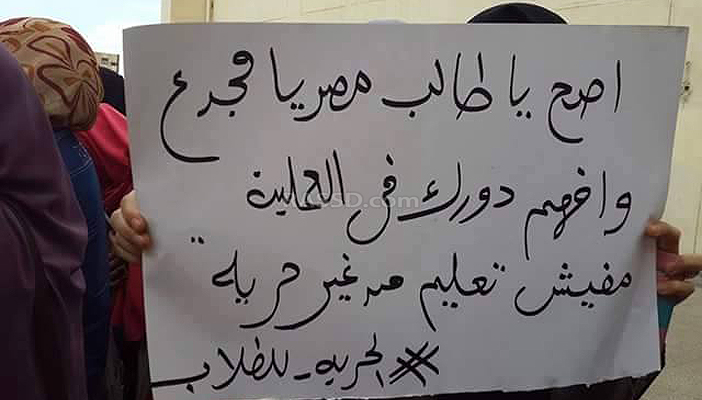 اصح يا طالب مصر يا مجدع
وافهم دورك في العملية
مفيش تعليم من غير حرية
#الحريه_للطلاب